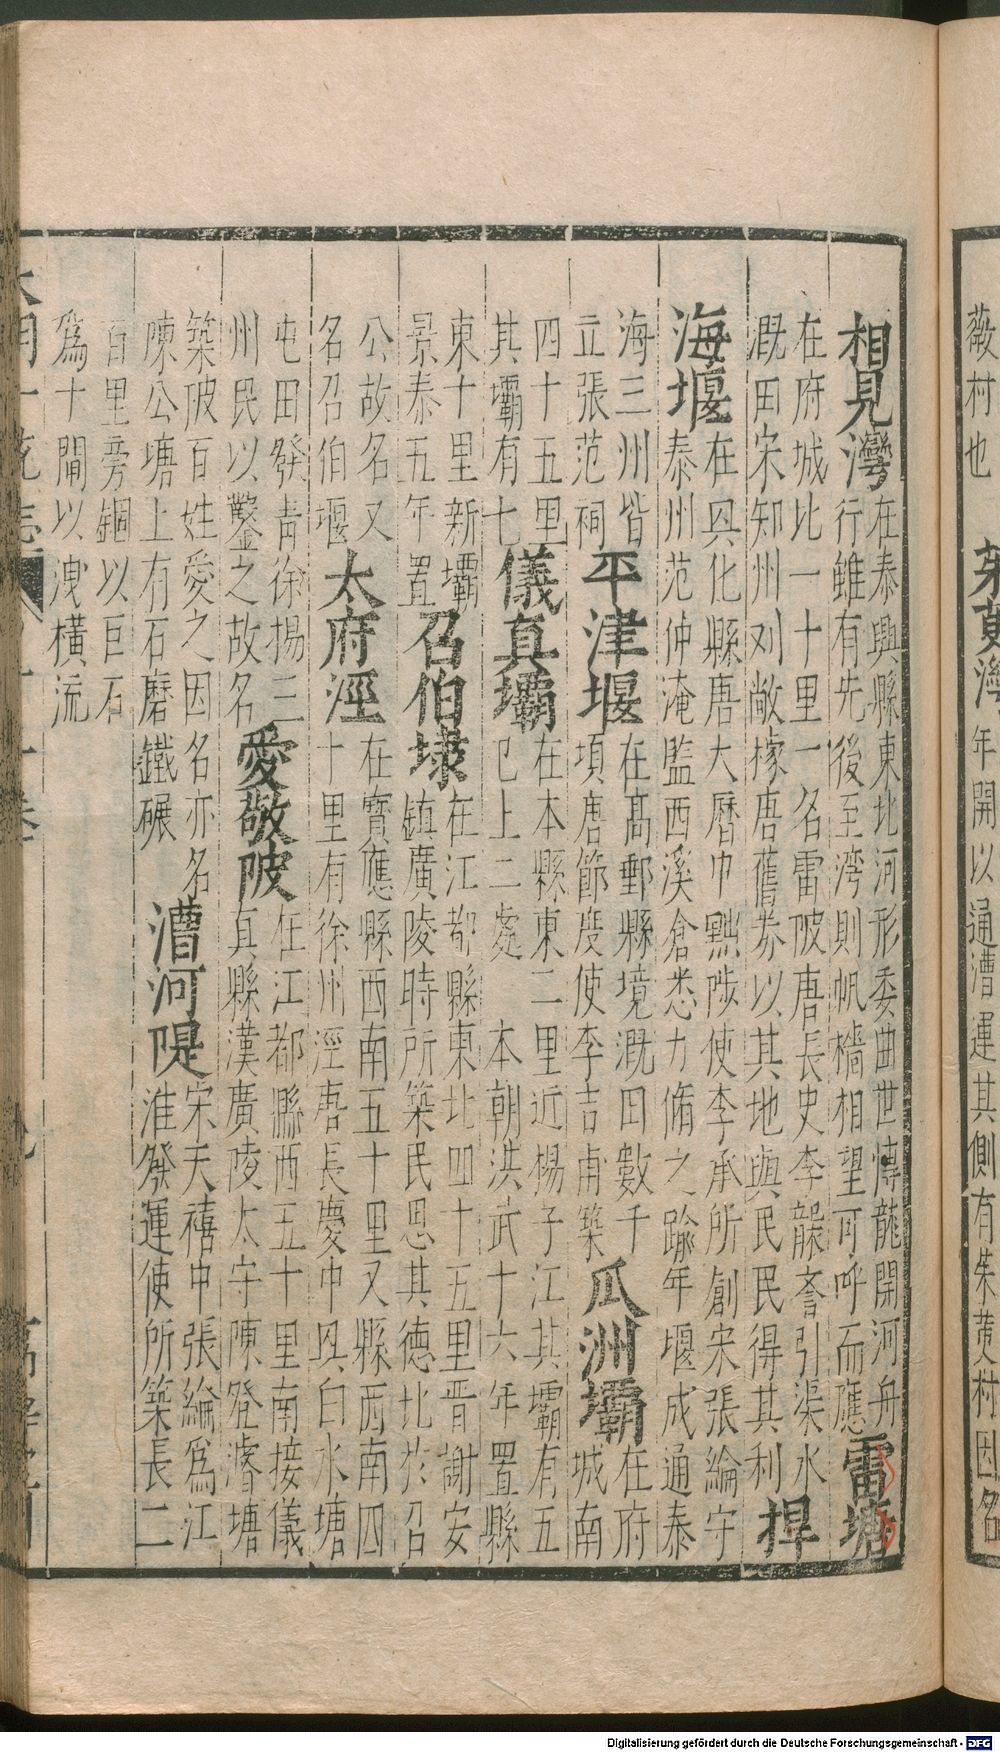 薇村也
茱萸灣
年開以通漕運其側有茱萸村因名
相見灣
在泰興縣東北河形委曲世傳龍開河舟
行雖有先後至湾則帆檣相望可呼而應
雷塘
在府城北一十里一名雷陂唐長史李襲譽引渠水
溉田宋知州刘敞據唐舊券以其地與民民得其利
捍
海堰
在興化縣唐大曆中黜陟使李承所創宋張綸守
泰州范仲淹監西溪倉悉力脩之踰年堰成通泰
海三州皆
立張范祠
平津堰
在髙郵縣境溉田數千
頃唐節度使李吉甫築
瓜洲壩
在府
城南
四十五里
其壩有七
儀真壩
在本縣東二里近楊子江其壩有五
已上二處 本朝洪武十六年置縣
東十里新壩
景泰五年置
召伯埭
在江都縣東北四十五里晋謝安
鎮廣陵時所築民思其德比於召
公故名又
名召伯堰
太府涇
在寳應縣西南五十里又縣西南四
十里有徐州涇唐長慶中興白水塘
屯田發青徐揚三
州民以鑿之故名
愛敬陂
在江都縣西五十里南接儀
真縣漢廣陵太守陳登濬塘
築陂百姓愛之因名亦名
陳公塘上有石磨鐵碾
漕河隄
宋天禧中張綸為江
淮發運使所築長二
百里旁錮以巨石
為十閘以洩橫流
大明一統志
九
Digitalisierung gefördert durch die Deutsche Forschungsgemeinschaft - DFG